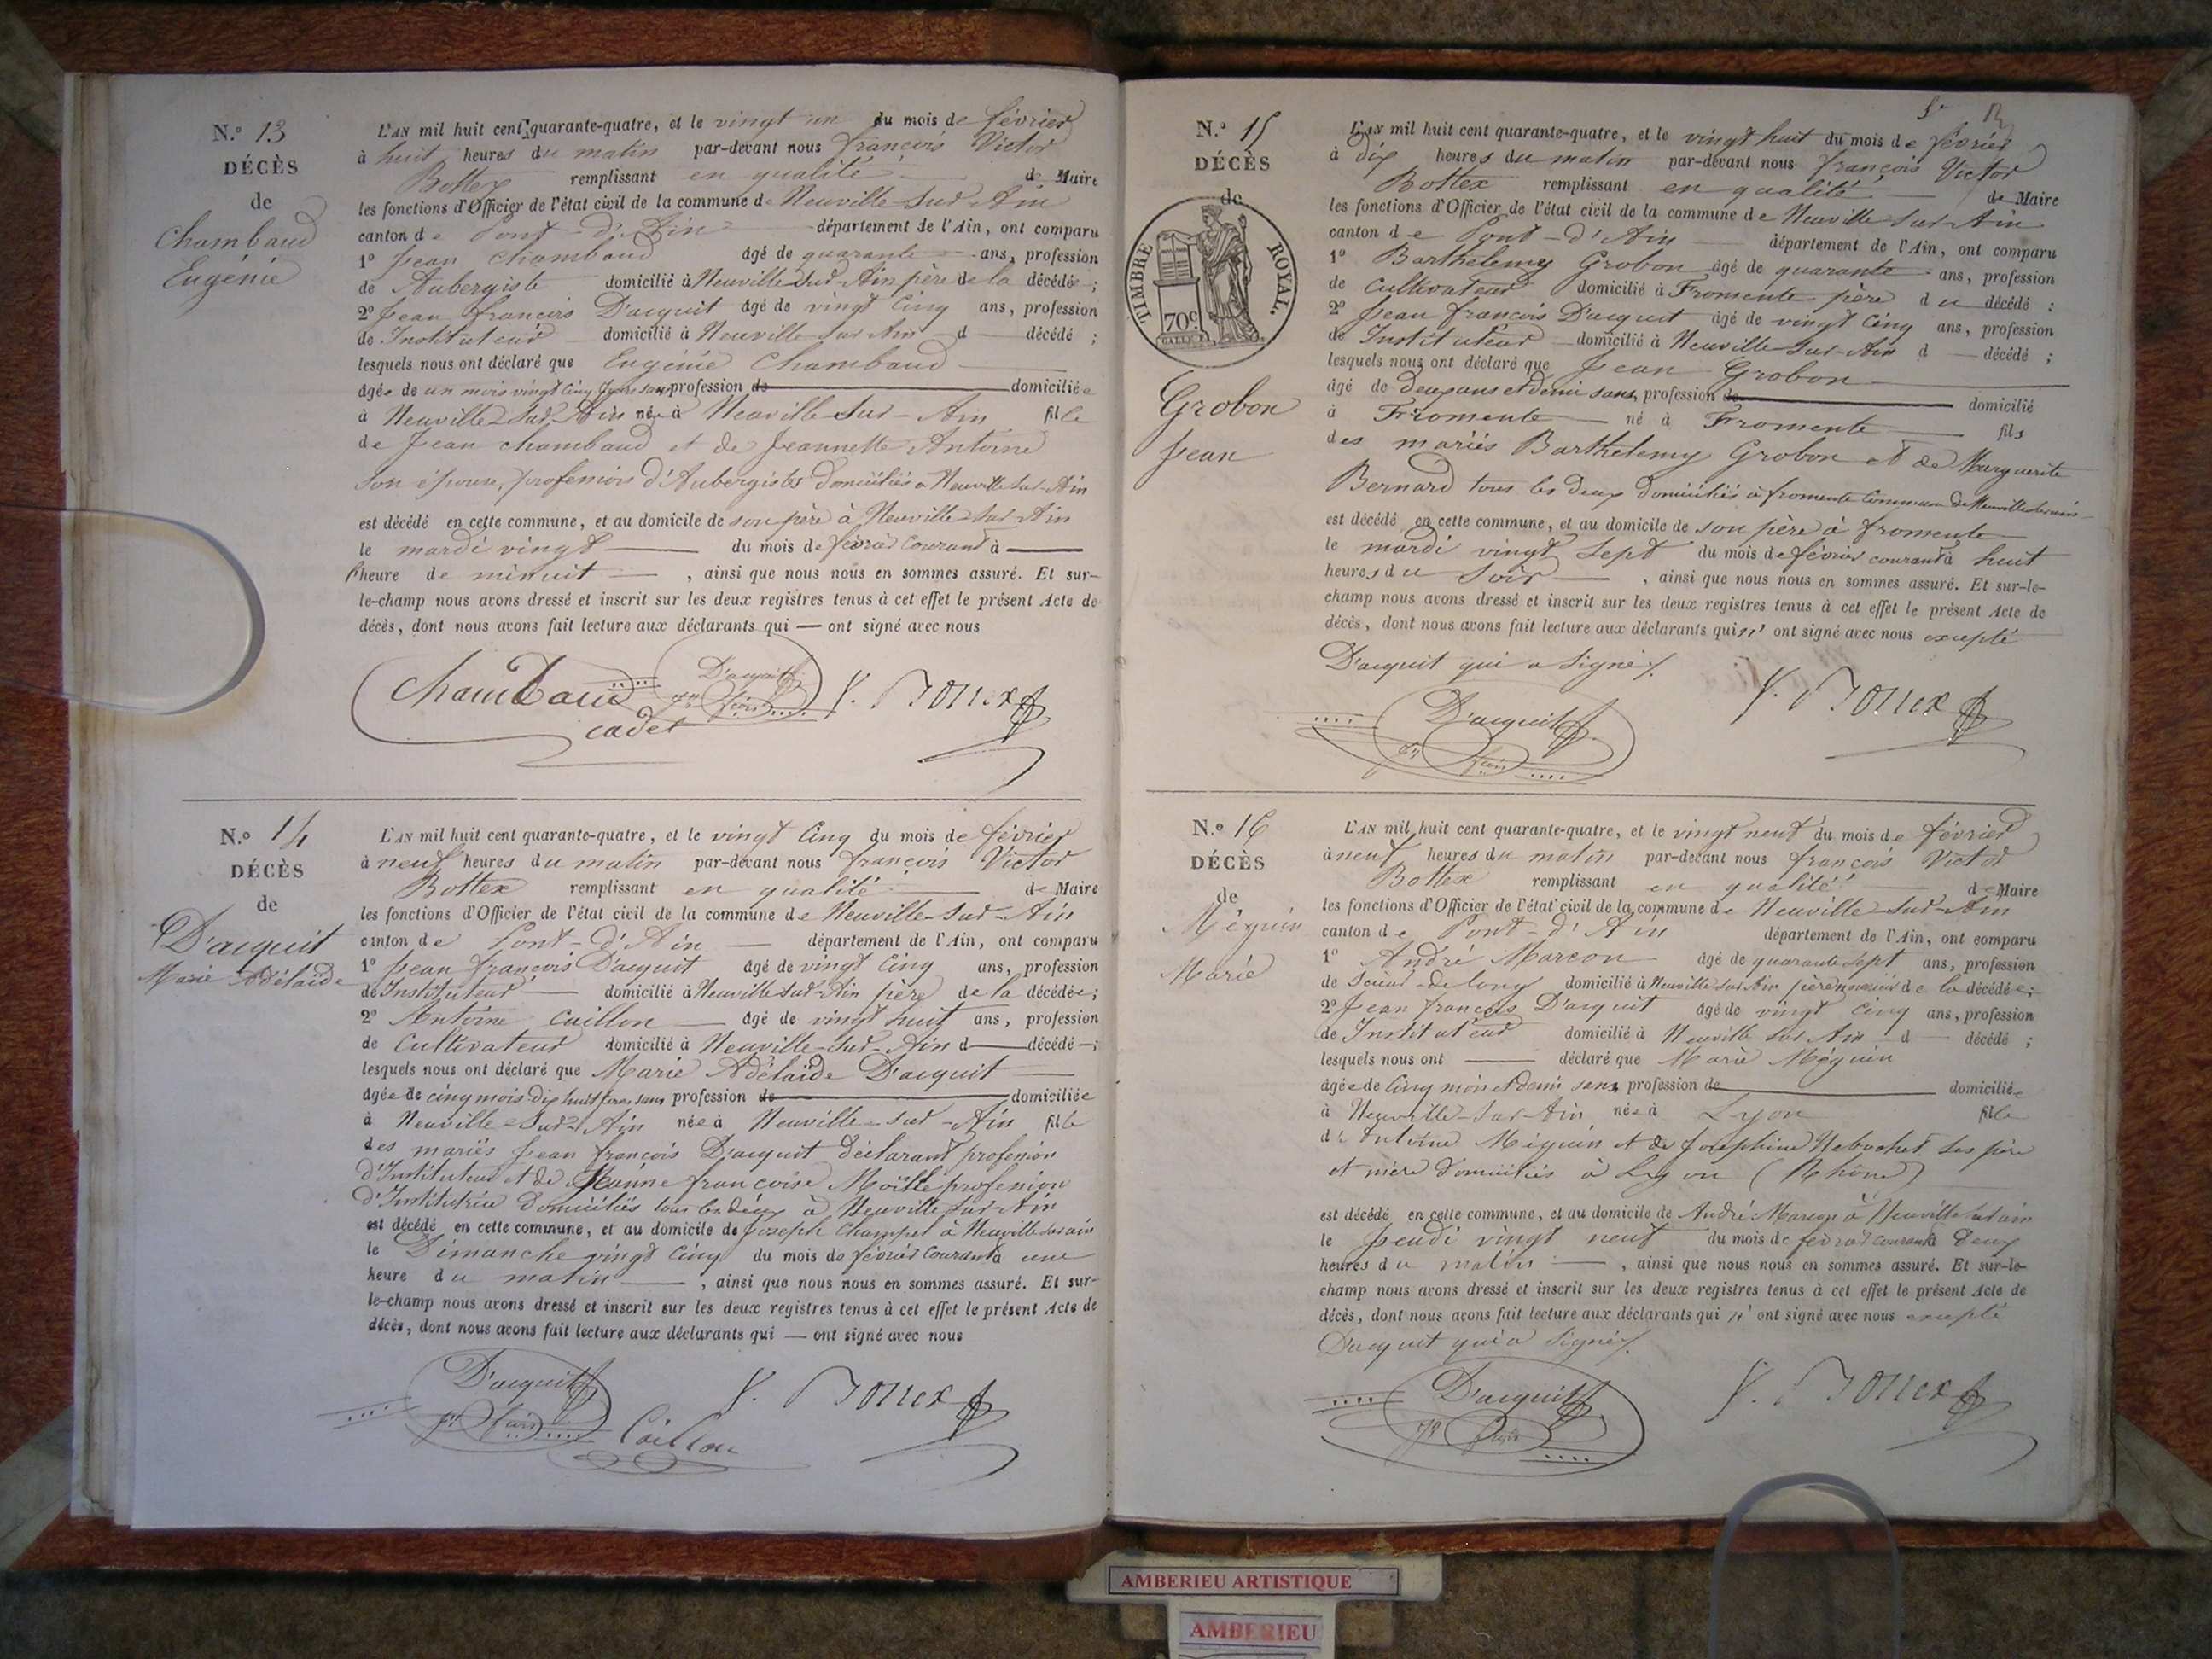 N.º 13
DÉCÈS
de
Chambaud
Eugénie
L'AN mil huit cent quarante-quatre, et le vingt un du mois de février
à huit heures du matin par-devant nous françois Victor
Bottex remplissant en qualité de Maire
les fonctions d'Officier de l'état civil de la commune de Neuville-sur-Ain
canton de Pont-d'Ain département de l'Ain, ont comparu
1º Jean Chambaud âgé de quarante ans, profession
de Aubergiste domicilié à Neuville sur Ain père de la décédée ;
2º Jean françois D'acquit âgé de vingt Cinq ans, profession
de Instituteur domicilié à Neuville-sur-Ain d décédé ;
lesquels nous ont déclaré que Eugénie Chambaud
âgée de un mois vingt cinq jours sans profession de domiciliée
à Neuville-sur-Ain née à Neuville sur-Ain fille
de Jean Chambaud et de Jeannette Antoine
son épouse, profession d'Aubergistes domiciliés à Neuville sur-Ain
est décédé en cette commune, et au domicile de son père à Neuville-sur-Ain
le mardi vingt du mois de février courant à
l'heure de minuit , ainsi que nous nous en sommes assuré. Et sur-
le-champ nous avons dressé et inscrit sur les deux registres tenus à cet effet le présent Acte de
décès, dont nous avons fait lecture aux déclarants qui — ont signé avec nous
Chambaud D'acquit V. Bottex
cadet
N.º 14
DÉCÈS
de
D'acquit
Marie Adélaïde
L'AN mil huit cent quarante-quatre, et le vingt Cinq du mois de février
à neuf heures du matin par-devant nous françois Victor
Bottex remplissant en qualité de Maire
les fonctions d'Officier de l'état civil de la commune de Neuville-sur-Ain
canton de Pont-d'Ain département de l'Ain, ont comparu
1º Jean françois D'acquit âgé de vingt Cinq ans, profession
de Instituteur domicilié à Neuville sur Ain père de la décédée ;
2º Antoine Caillon âgé de vingt huit ans, profession
de Cultivateur domicilié à Neuville-sur-Ain d décédé ;
lesquels nous ont déclaré que Marie Adélaïde D'acquit
âgée de cinq mois dix huit jours sans profession de domiciliée
à Neuville-sur-Ain née à Neuville-sur-Ain fille
des mariés Jean françois D'acquit déclarant profession
d'Instituteur et de Jeanne françoise profession
d'Institutrice domiciliés tous les deux à Neuville sur-Ain
est décédé en cette commune, et au domicile de Joseph Champel à Neuville sur ain
le Dimanche vingt cinq du mois de février courant à une
heure du matin , ainsi que nous nous en sommes assuré. Et sur-
le-champ nous avons dressé et inscrit sur les deux registres tenus à cet effet le présent Acte de
décès, dont nous avons fait lecture aux déclarants qui — ont signé avec nous
D'acquit V. Bottex
Caillon
N.º 15
DÉCÈS
de
TIMBRE ROYAL.
70c
Grobon
Jean
L'AN mil huit cent quarante-quatre, et le vingt huit du mois de février
à dix heures du matin par-devant nous françois Victor
Bottex remplissant en qualité de Maire
les fonctions d'Officier de l'état civil de la commune de Neuville sur Ain
canton de Pont-d'Ain département de l'Ain, ont comparu
1º Barthelemy Grobon âgé de quarante ans, profession
de Cultivateur domicilié à Fromente père du décédé ;
2º Jean françois D'acquit âgé de vingt Cinq ans, profession
de Instituteur domicilié à Neuville sur-Ain d décédé ;
lesquels nous ont déclaré que Jean Grobon
âgé de deux ans et demi sans profession de domicilié
à Fromente né à Fromente fils
des mariés Barthelemy Grobon et de Marguerite
Bernard tous les deux domiciliés à fromente Commune de Neuville
est décédé en cette commune, et au domicile de son père à fromente
le mardi vingt sept du mois de février courant à huit
heures du soir , ainsi que nous nous en sommes assuré. Et sur-le-
champ nous avons dressé et inscrit sur les deux registres tenus à cet effet le présent Acte de
décès, dont nous avons fait lecture aux déclarants qui n' ont signé avec nous excepté
D'acquit qui a signé
D'acquit V. Bottex
N.º 16
DÉCÈS
de
Méguin
Marie
L'AN mil huit cent quarante-quatre, et le vingt neuf du mois de février
à neuf heures du matin par-devant nous françois Victor
Bottex remplissant en qualité de Maire
les fonctions d'Officier de l'état civil de la commune de Neuville-sur-Ain
canton de Pont-d'Ain département de l'Ain, ont comparu
1º André Marcon âgé de quarante sept ans, profession
de Scieur-de long domicilié à Neuville sur Ain père nourricier de la décédée ;
2º Jean françois D'acquit âgé de vingt Cinq ans, profession
de Instituteur domicilié à Neuville sur Ain d décédé ;
lesquels nous ont déclaré que Marie Méguin
âgée de Cinq mois et demi sans profession de domiciliée
à Neuville-sur-Ain née à Lyon fille
d'Antoine Méguin et de Josephine ses père
et mère domiciliés à Lyon (Rhône)
est décédé en cette commune, et au domicile de André Marcon à Neuville sur ain
le jeudi vingt neuf du mois de février courant à deux
heures du matin , ainsi que nous nous en sommes assuré. Et sur-le-
champ nous avons dressé et inscrit sur les deux registres tenus à cet effet le présent Acte de
décès, dont nous avons fait lecture aux déclarants qui n' ont signé avec nous excepté
D'acquit qui a signé
D'acquit V. Bottex
AMBERIEU ARTISTIQUE
AMBERIEU